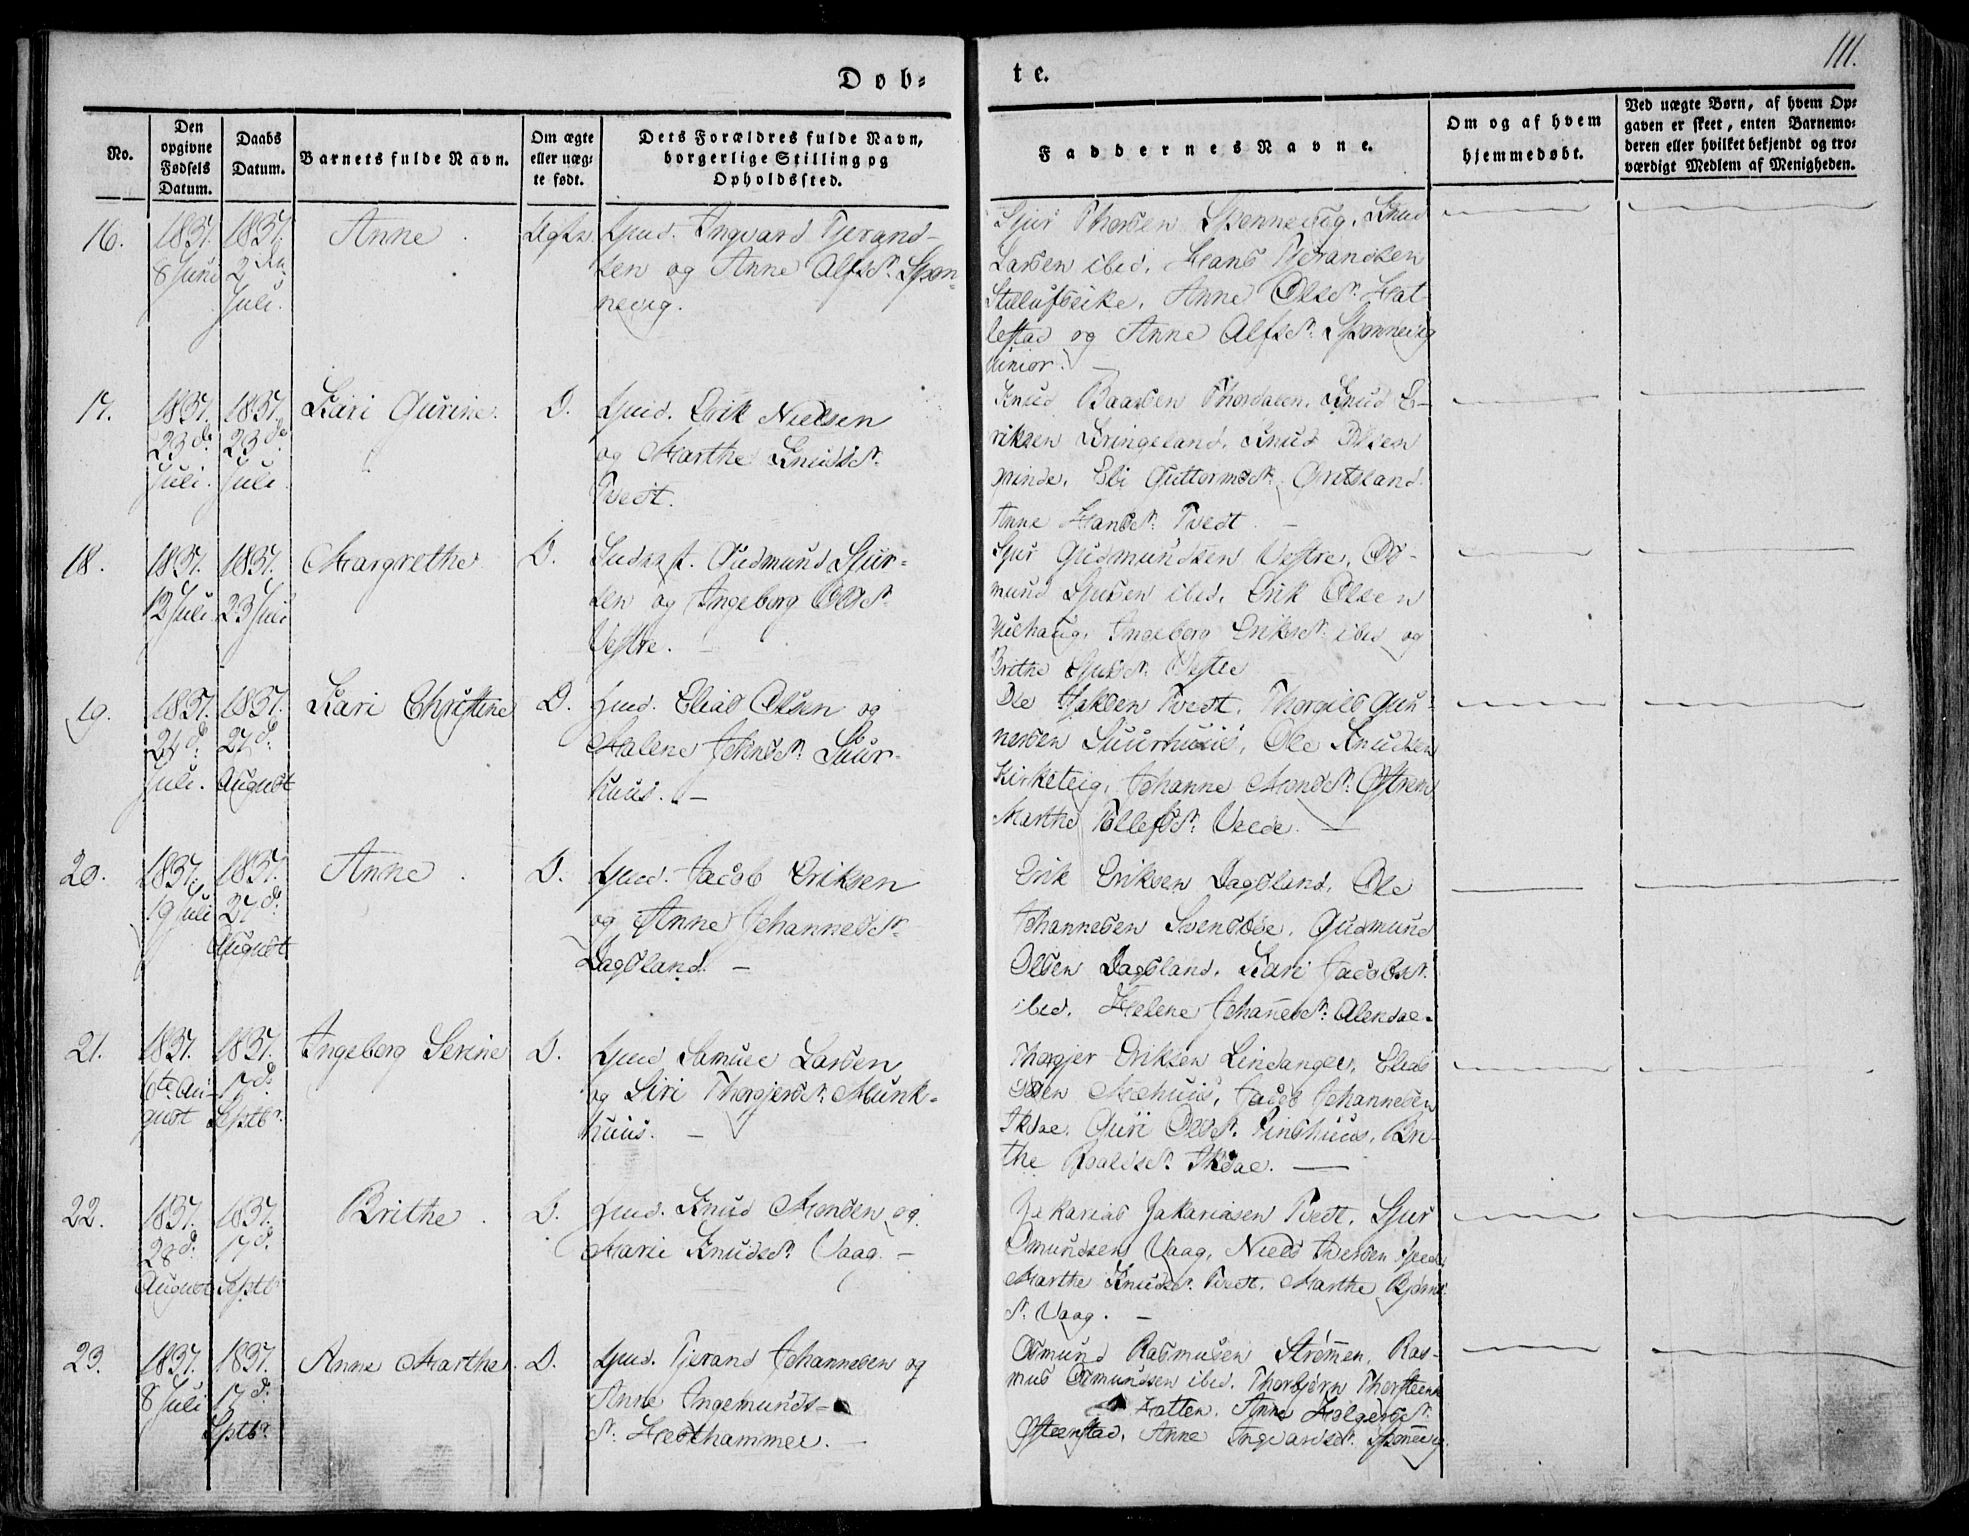 111.
Døb-
te.
No.
Den opgivne Fødsels Datum.
Daabs Datum.
Barnets fulde Navn.
Om ægte eller uæg-te født.
Dets Forældres fulde Navn, borgerlige Stilling og Opholdssted.
Faddernes Navne.
Om og af hvem hjemmedøbt.
Ved uægte Børn, af hvem Op-gaven er skeet, enten Barnemo-deren eller hvilket bekjendt og tro-værdigt Medlem af Menigheden.
16.
1837.
8 Juni
1837.
2den
Juli.
Anne
Ægte.
Gmd. Ingvard Tjerand-
sen og Anne Alfsdr. Skjøn-
nevig.
Sjur Thorsen Skjønnevig, Knud
Larsen ibid. Hans Tjerandsen
Anne Olsdr. Hat-
lestad og Anne Alfsdr. Skjønnevig
junior.
17.
1837.
23d.
Juli.
1837.
23d.
Juli.
Kari Gurine.
D.
Gmd. Erik Nielsen
og Marthe Knudsdr.
Tvedt.
Knud Baarsen Thordalen, Knud E-
riksen Kringeland, Knud Olsen
Grinde, Eli Guttormsdr. Grutsland
Anne Hansdr. Tvedt.
18.
1837.
12 Juli
1837.
23 Juli
Margrethe
D.
Gudmund Sjur-
sen og Ingeborg Olsdr.
Vestre.
Sjur Gudmundsen Vestre, Od-
mund Sjursen ibid. Erik Olsen
Ingeborg Eriksdr. ibid og
Brithe Sjursdr. Vestre
19.
1837.
24d.
Juli.
1837.
27d.
August
Kari Christine
D.
Gmd. Elias Olsen og
Malene Johnsdr. Suur-
huus.
Ole Tvedt, Thorgils Gun-
nersen Suurhuus, Ole Knudsen
Kirketeig, Johanne Monsdr. Østrem
Marthe Tollefsdr. Velde.
20.
1837.
19 Juli
1837.
27d.
August
Anne
D.
Gmd. Jacob Eriksen
og Anne Johannesdr.
Dagsland.
Erik Eriksen Dagsland, Ole
Johannesen Svensbøe, Gudmund
Olsen Dagsland, Kari Jacobsdr.
ibid. Helene Johannesdr. Alendae.
21.
1837.
6te Au-
gust
1837.
17d.
Septbr.
Ingeborg Serine
D.
Gmd Samuel Larsen
og Siri Thorgjersdr. Munk-
huus.
Thorgjer Eriksen Lindanger, Elias
Olsen Mehuus, Jacob Johannesen
Ikdae. Guri Olsdr. Finshuus, Bri-
the Roaldsdr. Ikdae.
22.
1837.
28d.
August
1837.
17d.
Septbr
Brithe
D.
Gmd. Knud Monsen og
Marie Knudsdr. Vaag.
Zakarias Zakariasen Tvedt, Sjur
Omundsen Vaag, Niels Iversen
Marthe Knudsdr. Tvedt, Marthe Bjørns-
dr. Vaag.
23.
1837.
8 Juli
1837.
17d.
Septbr.
Anne Marthe
D.
Gmd. Tjerand Johannesen og
Anne Ingemunds-
dr. Hesthammer.
Osmund Rasmusen Strømmen, Ras-
mus Osmundsen ibid. Thorbjørn Thorsteens
Hatten. Anne Holgersdr.
Østeenstad, Anne Ingvardsdr. Skjønnevig.